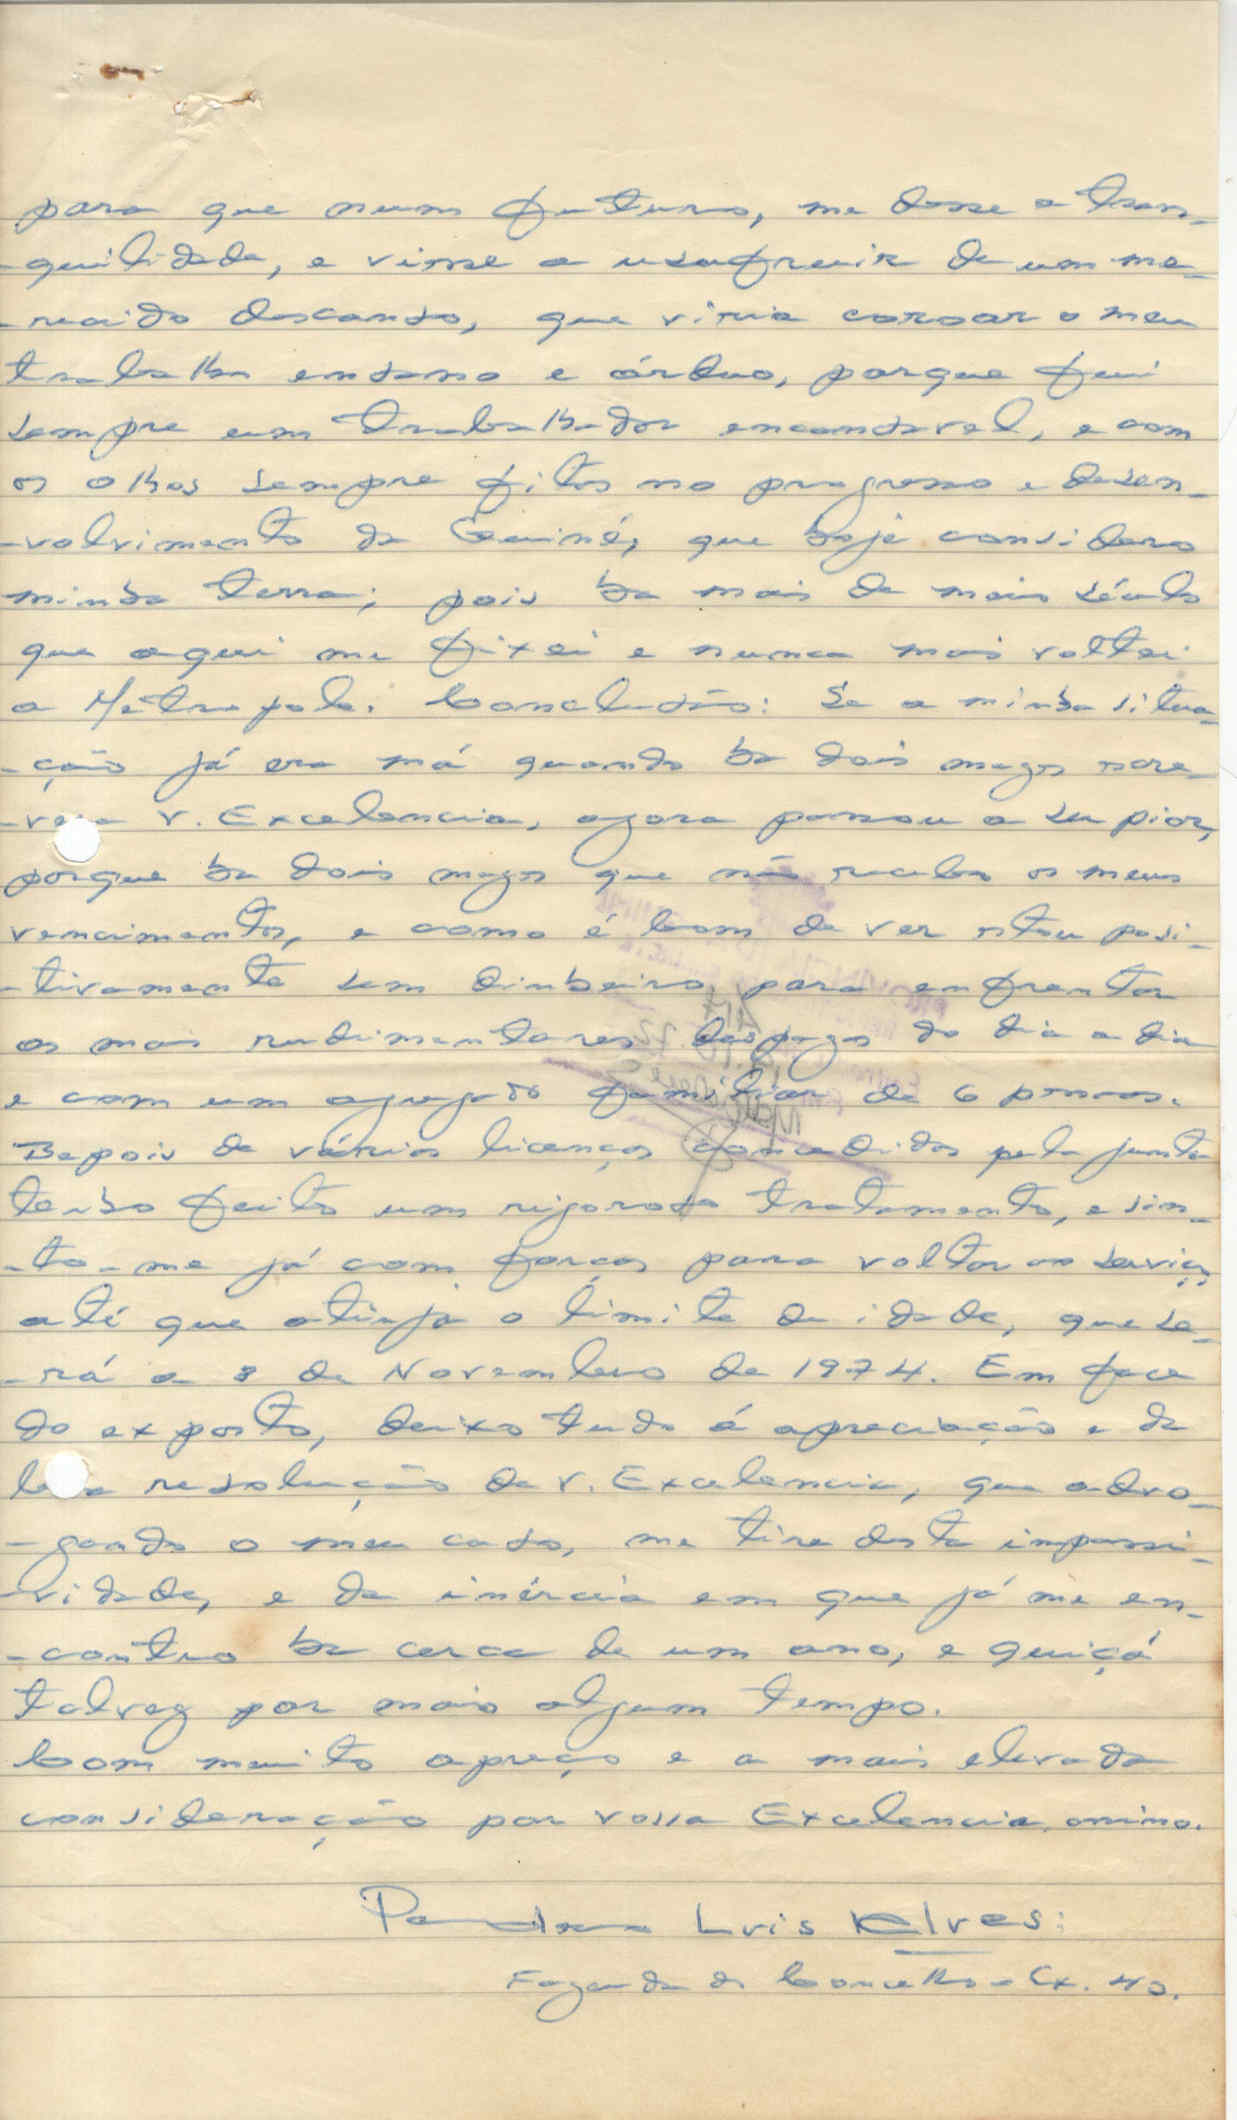 para que num futuro, me desse a tran-
-quilidade, e visse a usufruir de um me-
-recido descanso, que viria coroar o meu
trabalho insano e árduo, porque fui
sempre um trabalhador incansavel, e com
os olhos sempre fitos no progresso e desen-
-volvimento da Guiné, que hoje considero
minha terra; pois ha mais de meio século
que aqui me fixei e nunca mais voltei
a Metropole. Conclusão: Se a minha situa-
-ção já era má quando ha dois mezes escre-
V. Excelencia, agora passou a ser pior,
porque ha dois mezes que não recebo os meus
vencimentos, e como é bom de ver estou posi-
-tivamente sem dinheiro, para enfrentar
as mais rudimentares despezas do dia a dia
e com um agregado familiar de 6 pessoas.
Depois de várias licenças concedidas pela junta
tenho feito um rigoroso tratamento, e sin-
-to-me já com forças para voltar ao serviço,
até que atinja o limite de idade, que se-
-rá a 8 de Novembro de 1974. Em face
do exposto, deixo tudo á apreciação e da
resolução de V. Excelencia, que advo-
-gando o meu caso, me tire desta impassi-
-vidade, e da inércia em que já me en-
-contro ha cerca de um ano, e quiçá
talvez por mais algum tempo.
Com muito apreço e a mais elevada
consideração por vossa Excelencia assino.
Luis Alves:
Fazenda de Concelho - Cx. 40.